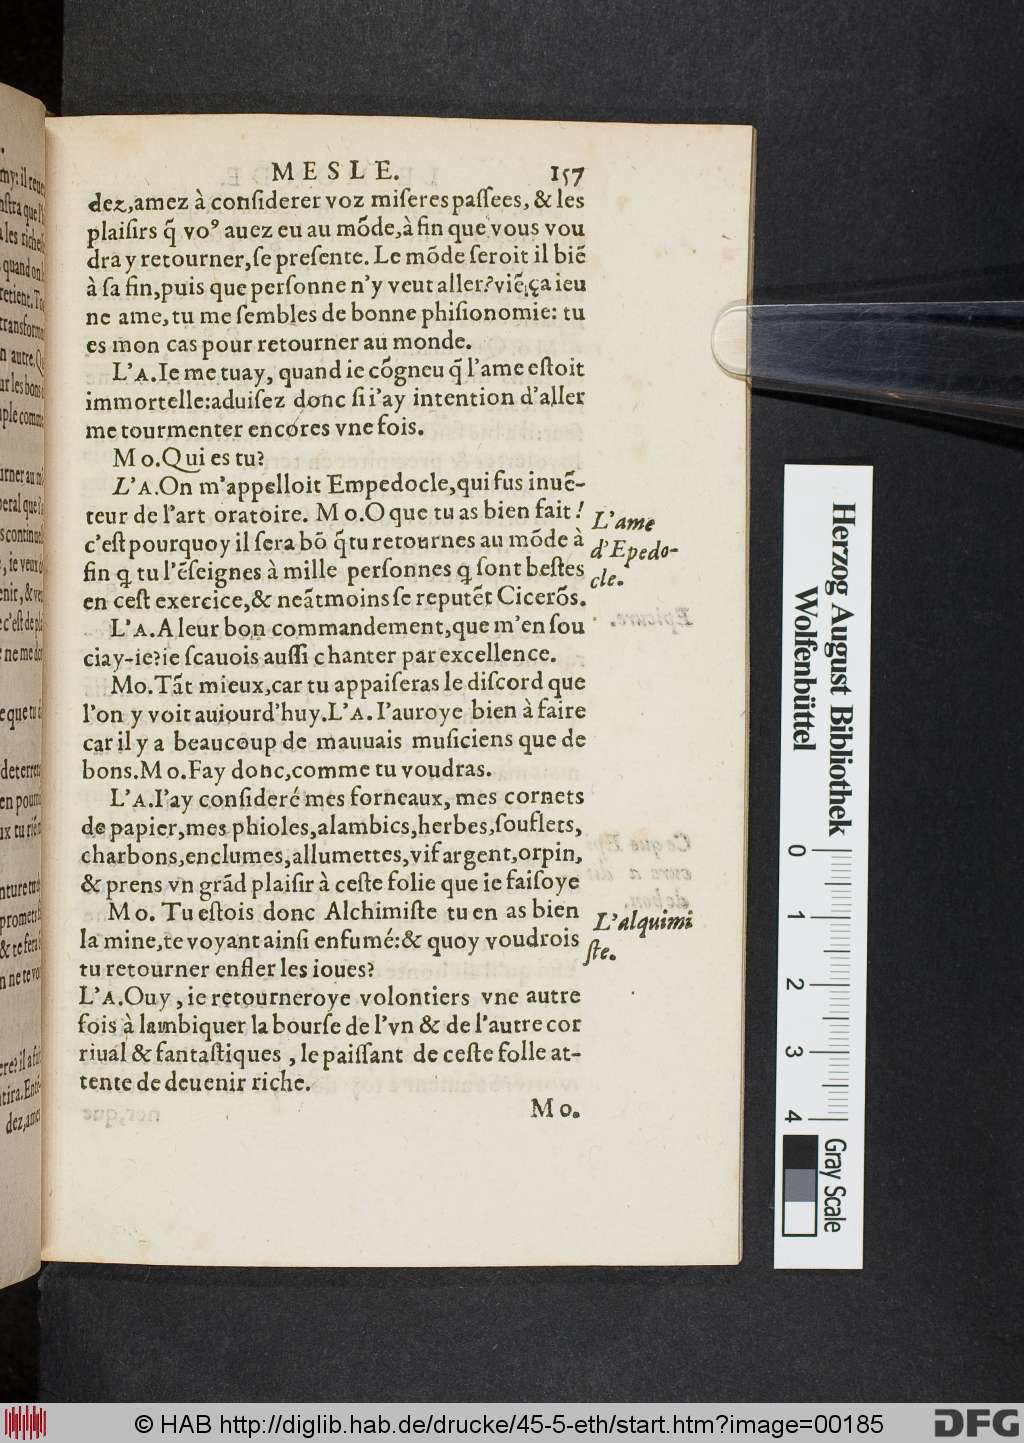 MESLE. 157
dez,amez à conſiderer voz miſeres paſſees, & les
plaiſirs q̃ voꝰ auez eu au mõde,à fin que vous vou
dra y retourner,ſe preſente. Le mõde ſeroit il biẽ
à ſa fin,puis que perſonne n'y veut aller?viẽ ça ieu
ne ame, tu me ſembles de bonne phiſionomie: tu
es mon cas pour retourner au monde.
L'A. Ie me tuay, quand ie cõgneu q̃ l'ame eſtoit
immortelle:aduiſez donc ſi i'ay intention d'aller
me tourmenter encores vne fois.
Mo. Qui es tu?
L'A. On m'appelloit Empedocle,qui fus inuẽ-
teur de l'art oratoire. Mo. O que tu as bien fait!
c'eſt pourquoy il ſera bõ q̃ tu retournes au mõde à
fin ꝗ tu l'ẽſeignes à mille perſonnes ꝗ ſont beſtes
en ceſt exercice,& neãtmoins ſe reputẽt Cicerõs.
L'ame
d'Epedo-
cle.
L'A. A leur bon commandement,que m'en ſou
ciay-ie?ie ſcauois auſſi chanter par excellence.
Mo. Tãt mieux,car tu appaiſeras le diſcord que
l'on y voit auiourd'huy. L'A. I'auroye bien à faire
car il y a beaucoup de mauuais muſiciens que de
bons. Mo. Fay donc,comme tu voudras.
L'A. I'ay conſideré mes forneaux, mes cornets
de papier,mes phioles,alambics,herbes,ſouflets,
charbons,enclumes,allumettes,vif argent,orpin,
& prens vn grãd plaiſir à ceſte folie que ie faiſoye
Mo. Tu eſtois donc Alchimiſte tu en as bien
la mine,te voyant ainſi enfumé:& quoy voudrois
tu retourner enfler les ioues?
L'alquimi
ſte.
L'A. Ouy, ie retourneroye volontiers vne autre
fois à lambiquer la bourſe de l'vn & de l'autre cor
riual & fantaſtiques, le paiſſant de ceſte folle at-
tente de deuenir riche.
Mo.
Herzog August Bibliothek
Wolfenbüttel
0 1 2 3 4
Gray Scale
© HAB http://diglib.hab.de/drucke/45-5-eth/start.htm?image=00185
DFG